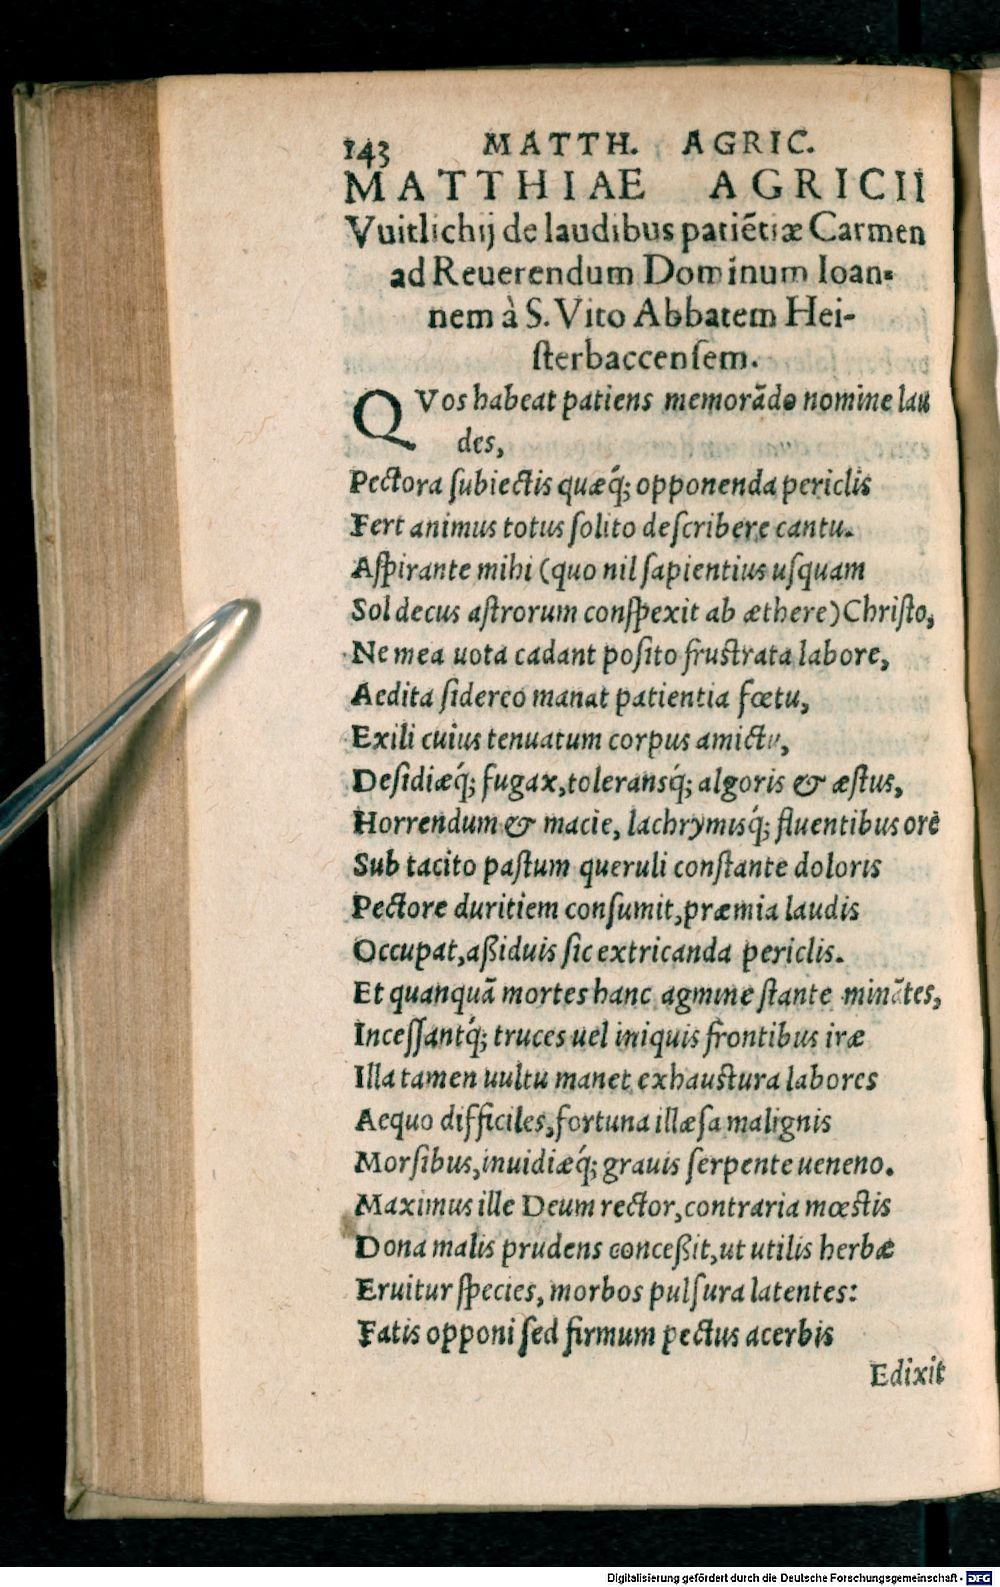 143 MATTH. AGRIC.
MATTHIAE AGRICII
Vuitlichij de laudibus patiētiæ Carmen
ad Reuerendum Dominum Ioan-
nem à S. Vito Abbatem Hei-
ſterbaccenſem.
QVos habeat patiens memorãdo nomine lau
des,
Pectora ſubiectis quæq́; opponenda periclis
Fert animus totus ſolito deſcribere cantu.
Aſpirante mihi (quo nil ſapientius uſquam
Sol decus aſtrorum conſpexit ab æthere) Chriſto,
Ne mea uota cadant poſito fruſtrata labore,
Aedita ſidereo manat patientia fœtu,
Exili cuius tenuatum corpus amictu,
Deſidiæq́; fugax, toleransq́; algoris & æſtus,
Horrendum & macie, lachrymisq́; fluentibus orē
Sub tacito paſtum queruli conſtante doloris
Pectore duritiem conſumit, præmia laudis
Occupat, aßiduis ſic extricanda periclis.
Et quanquã mortes hanc agmine ſtante minãtes,
Inceſſantq́; truces uel iniquis frontibus iræ
Illa tamen uultu manet exhauſtura labores
Aequo difficiles, fortuna illæſa malignis
Morſibus, inuidiæq́; grauis ſerpente ueneno.
Maximus ille Deum rector, contraria mœſtis
Dona malis prudens conceßit, ut utilis herbæ
Eruitur ſpecies, morbos pulſura latentes:
Fatis opponi ſed firmum pectus acerbis
Edixit
Digitalisierung gefördert durch die Deutsche Forschungsgemeinschaft - DFG